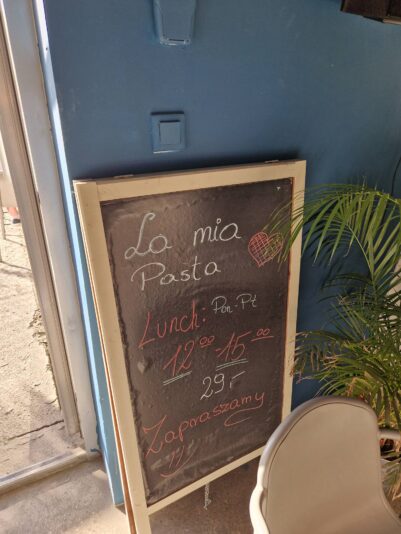 La mia
Pasta
Lunch: Pon-Pt
12⁰⁰ 15⁰⁰
29,-
Zapraszamy